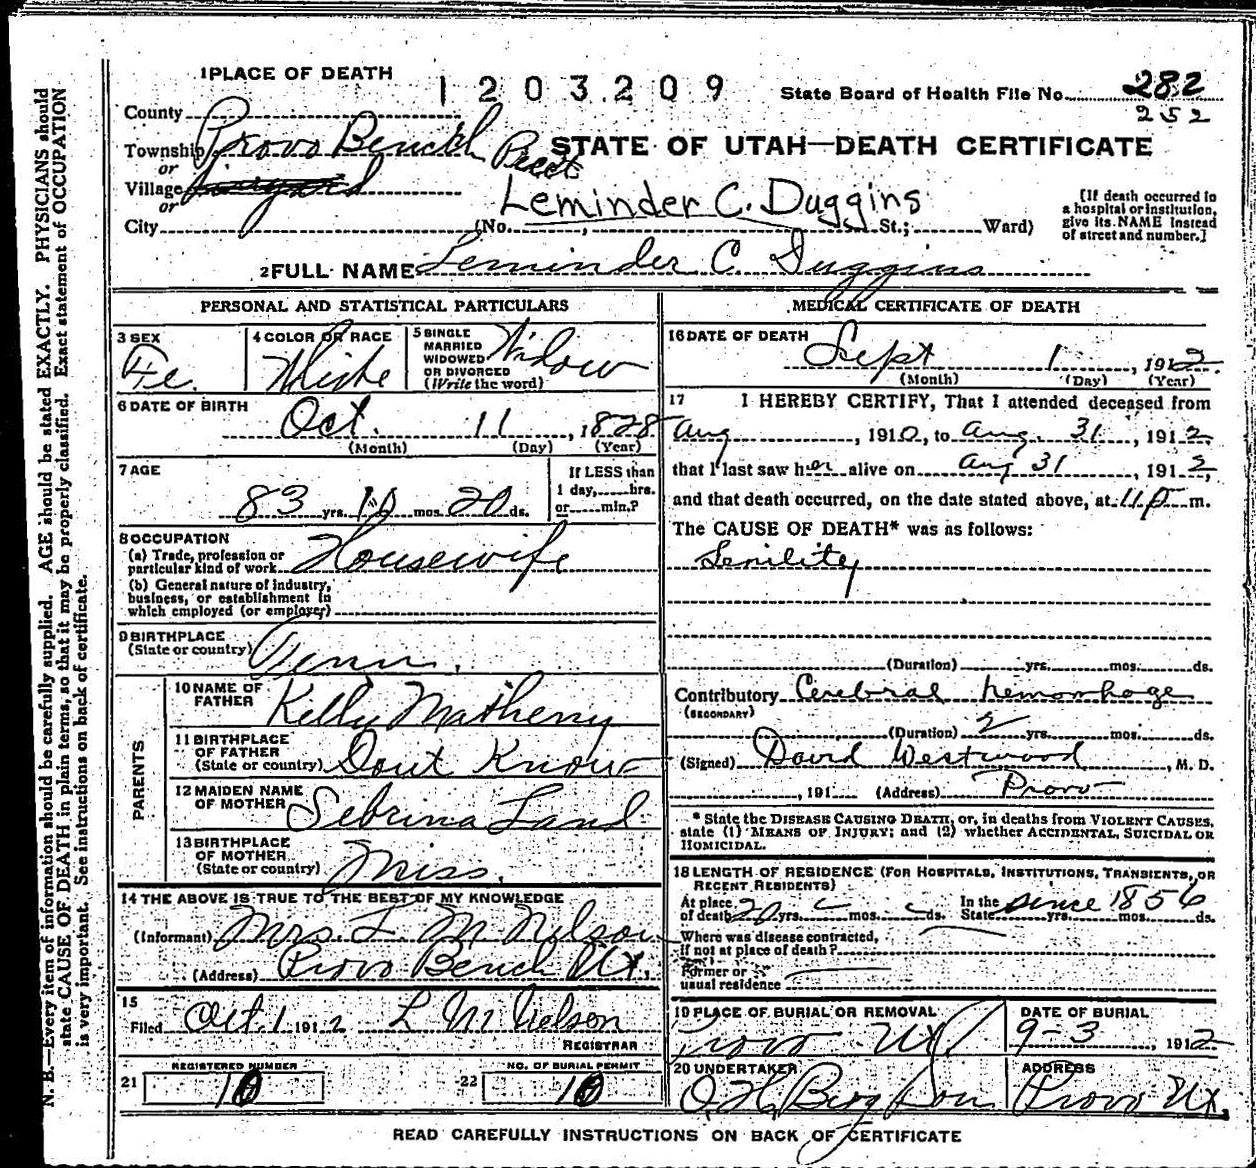 1 PLACE OF DEATH
1203209
State Board of Health File No. 282
252
County
Township Provo Bench Prect
or
Village
or
City
STATE OF UTAH—DEATH CERTIFICATE
Leminder C. Duggins
(No. , St.; Ward)
[If death occurred in
a hospital or institution,
give its NAME instead
of street and number.]
2 FULL NAME Leminder C. Duggins
PERSONAL AND STATISTICAL PARTICULARS
3 SEX Fe.
4 COLOR OR RACE White
5 SINGLE
MARRIED
WIDOWED
OR DIVORCED
(Write the word) Widow
6 DATE OF BIRTH
Oct. 11, 1828
(Month) (Day) (Year)
7 AGE
83 yrs. 10 mos. 20 ds.
If LESS than
1 day, hrs.
or min.?
8 OCCUPATION
(a) Trade, profession or
particular kind of work Housewife
(b) General nature of industry,
business, or establishment in
which employed (or employer)
9 BIRTHPLACE
(State or country) Tenn.
PARENTS
10 NAME OF
FATHER Kelly Matheny
11 BIRTHPLACE
OF FATHER
(State or country) Dont Know
12 MAIDEN NAME
OF MOTHER Sebrina Land
13 BIRTHPLACE
OF MOTHER
(State or country) Miss.
14 THE ABOVE IS TRUE TO THE BEST OF MY KNOWLEDGE
(Informant) Mrs. L. M. Nelson
(Address) Provo Bench Ut.
15
Filed Oct. 1 1912 L M Nelson
REGISTRAR
REGISTERED NUMBER
21 10
NO. OF BURIAL PERMIT
22 10
MEDICAL CERTIFICATE OF DEATH
16 DATE OF DEATH
Sept 1, 1912
(Month) (Day) (Year)
17 I HEREBY CERTIFY, That I attended deceased from
Aug , 1910, to Aug. 31, 1912
that I last saw her alive on Aug 31, 1912,
and that death occurred, on the date stated above, at 11 p m.
The CAUSE OF DEATH* was as follows:
Senility
(Duration) yrs. mos. ds.
Contributory Cerebral hemorrhage
(SECONDARY)
(Duration) 2 yrs. mos. ds.
(Signed) David Westwood, M. D.
, 191 (Address) Provo
* State the DISEASE CAUSING DEATH, or, in deaths from VIOLENT CAUSES,
state (1) MEANS OF INJURY; and (2) whether ACCIDENTAL, SUICIDAL OR
HOMICIDAL.
18 LENGTH OF RESIDENCE (FOR HOSPITALS, INSTITUTIONS, TRANSIENTS, OR
RECENT RESIDENTS)
At place
of death 20 yrs. mos. ds. In the
State since 1856 yrs. mos. ds.
Where was disease contracted,
if not at place of death?
Former or
usual residence
19 PLACE OF BURIAL OR REMOVAL
Provo Ut
DATE OF BURIAL
9-3, 1912
20 UNDERTAKER
O. H. Berg & Son
ADDRESS
Provo Ut.
READ CAREFULLY INSTRUCTIONS ON BACK OF CERTIFICATE
N. B.—Every item of information should be carefully supplied. AGE should be stated EXACTLY. PHYSICIANS should
state CAUSE OF DEATH in plain terms, so that it may be properly classified. Exact statement of OCCUPATION
is very important. See instructions on back of certificate.